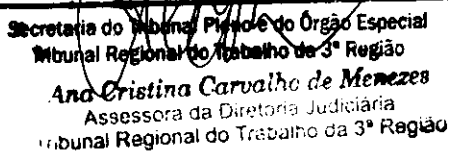 Secretaria do Tribunal Pleno e do Órgão Especial
Tribunal Regional do Trabalho da 3ª Região
Ana Cristina Carvalho de Menezes
Assessora da Diretoria Judiciária
Tribunal Regional do Trabalho da 3ª Região